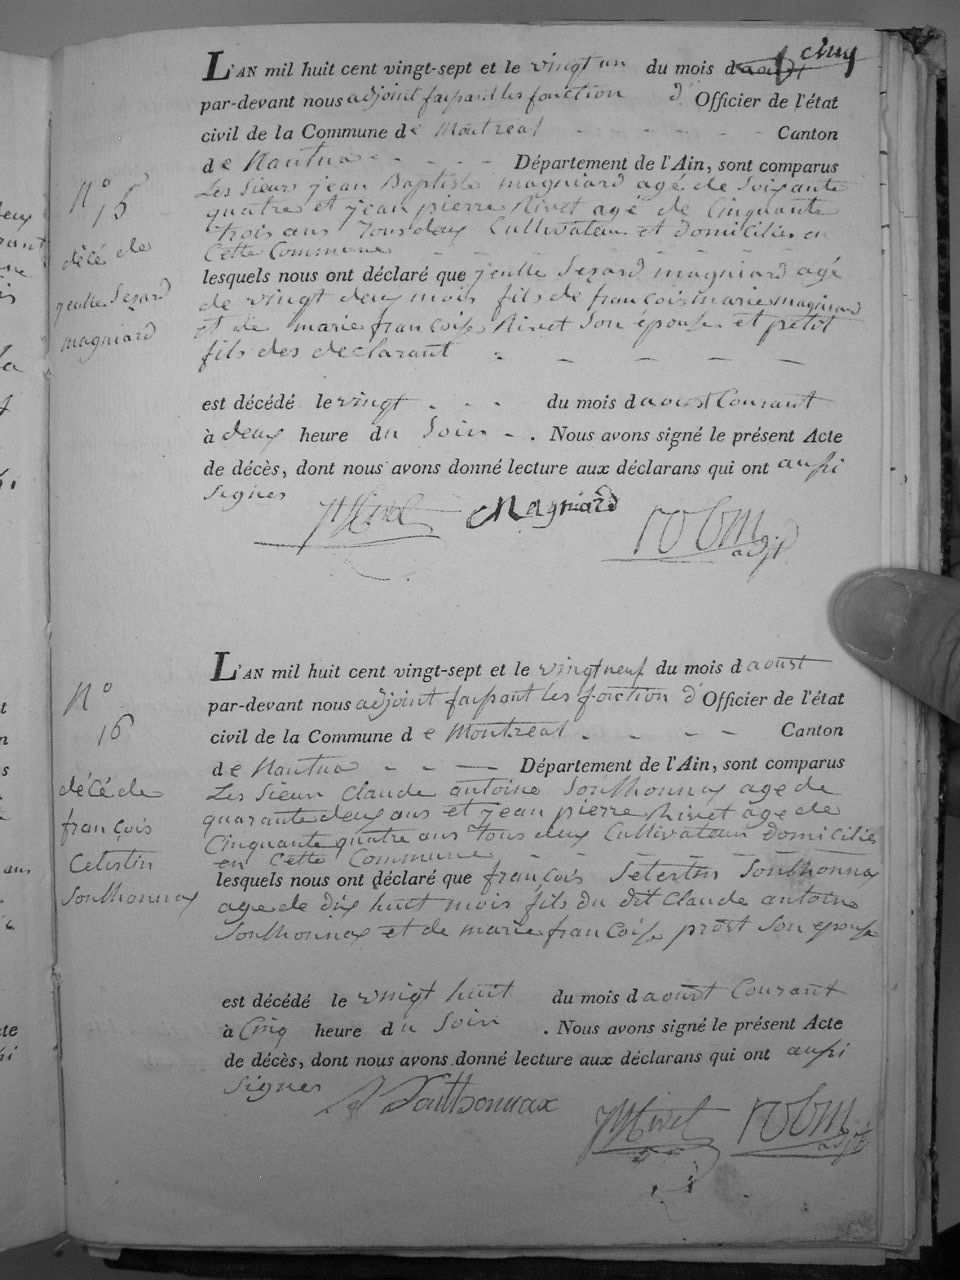 cinq
L'AN mil huit cent vingt-sept et le vingt un du mois d aoust
par-devant nous adjoint faisant les fonction d' Officier de l'état
civil de la Commune de Montreal - - - - - - Canton
de Nantua - - - - Département de l'Ain, sont comparus
Les Sieurs jean Baptiste magniard age de Soixante
quatre et jean pierre Nivet agé de Cinquante
trois ans tous deux Cultivateur et domicilies en
Cette Commune - -
lesquels nous ont déclaré que magniard agé
de vingt deux mois fils de francois marie magniard
et de marie francoise Nivet Son épouse et petit
fils des declarant - - - - -
est décédé le vingt - - - du mois d aoust Courant
à deux heure du Soir - . Nous avons signé le présent Acte
de décès, dont nous avons donné lecture aux déclarans qui ont aussi
Signes
N°
15
décé de
magniard
Magniard
robin
adjt
L'AN mil huit cent vingt-sept et le vingt neuf du mois d aoust
par-devant nous adjoint faisant les fonction d' Officier de l'état
civil de la Commune de Montreal - - - - Canton
de Nantua - - — Département de l'Ain, sont comparus
Les Sieur Claude antoine Sonthonnax age de
quarante deux ans et jean pierre Nivet age de
Cinquante quatre ans tous deux Cultivateur domicilies
en Cette Commune - - - - - -
lesquels nous ont déclaré que françois Selestin Sonthonnax
age de dix huit mois fils du dit Claude antoine
Sonthonnax et de marie francoise prost Son epouse
est décédé le vingt huit du mois d aoust Courant
à Cinq heure du Soir . Nous avons signé le présent Acte
de décès, dont nous avons donné lecture aux déclarans qui ont aussi
Signes
N°
16
décé de
françois
Celestin
Sonthonnax
Sonthonnax
robin
adjt